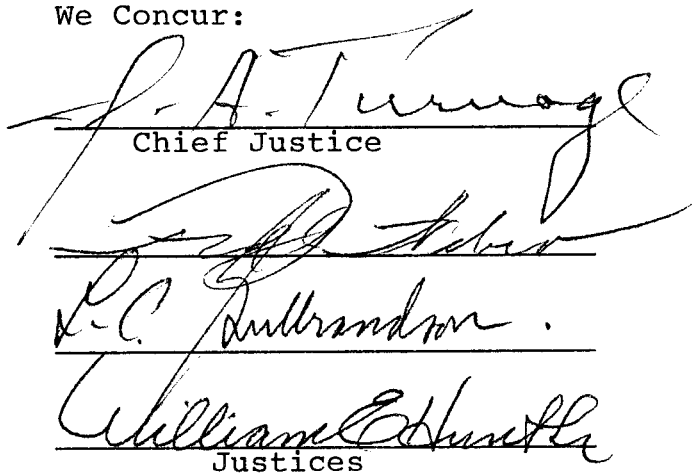 We Concur:
J. A. Turnage
Chief Justice
L. C. Gulbrandson
William E Hunt Sr
Justices